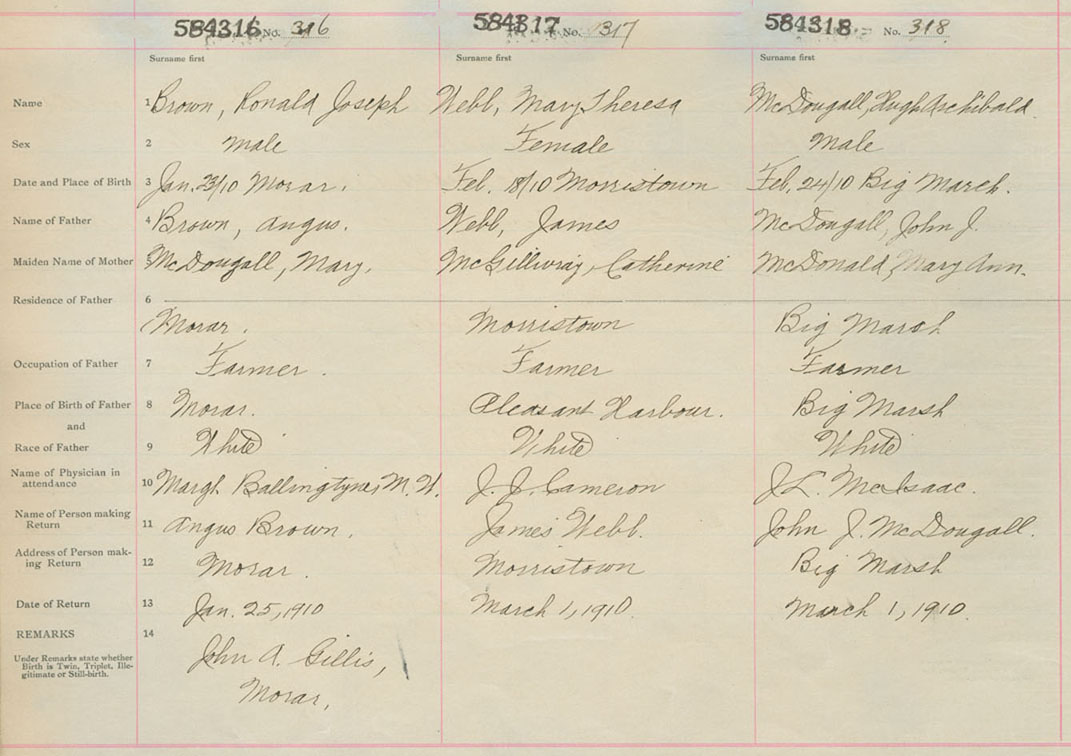 584316 No. 316 584317 No. 317 584318 No. 318
Surname first Surname first Surname first
Name 1 Brown, Ronald Joseph Webb, Mary Theresa McDougall, Hugh Archibald.
Sex 2 Male Female Male
Date and Place of Birth 3 Jan. 23/10 Morar. Feb. 18/10 Morristown Feb. 24/10 Big March.
Name of Father 4 Brown, Angus. Webb, James McDougall, John J.
Maiden Name of Mother 5 McDougall, Mary. McGillivray, Catherine McDonald, Mary Ann.
Residence of Father 6
Morar. Morristown Big Marsh
Occupation of Father 7 Farmer. Farmer Farmer
Place of Birth of Father 8 Morar. Pleasant Harbour. Big Marsh
and
Race of Father 9 White White White
Name of Physician in
attendance 10 Margt Ballingtyne, M.W. J. J. Cameron J.L. McIsaac.
Name of Person making
Return 11 Angus Brown. James Webb. John J. McDougall.
Address of Person mak-
ing Return 12 Morar. Morristown Big Marsh
Date of Return 13 Jan. 25, 1910 March 1, 1910. March 1, 1910.
REMARKS 14
Under Remarks state whether
Birth is Twin, Triplet, Ille-
gitimate or Still-birth.
John A. Gillis,
Morar,